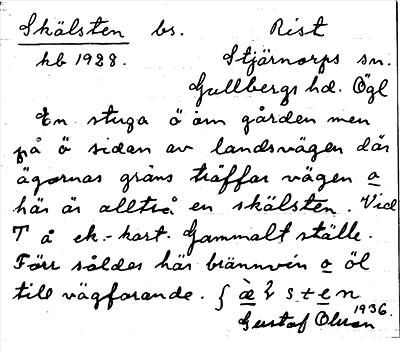 Skälsten bs. Rist
hb 1928. Stjärnorps sn.
Gullbergs hd. Ögl
En stuga ö om gården men
på ö sidan av landsvägen där
ägornas gräns träffar vägen o
här är alltså en skälsten. Vid
T å ek.-kart. Gammalt ställe.
Förr såldes här brännvin o öl
till vägfarande. ʃ æ̀ ɫ s t e n
Gustaf Olson 1936.